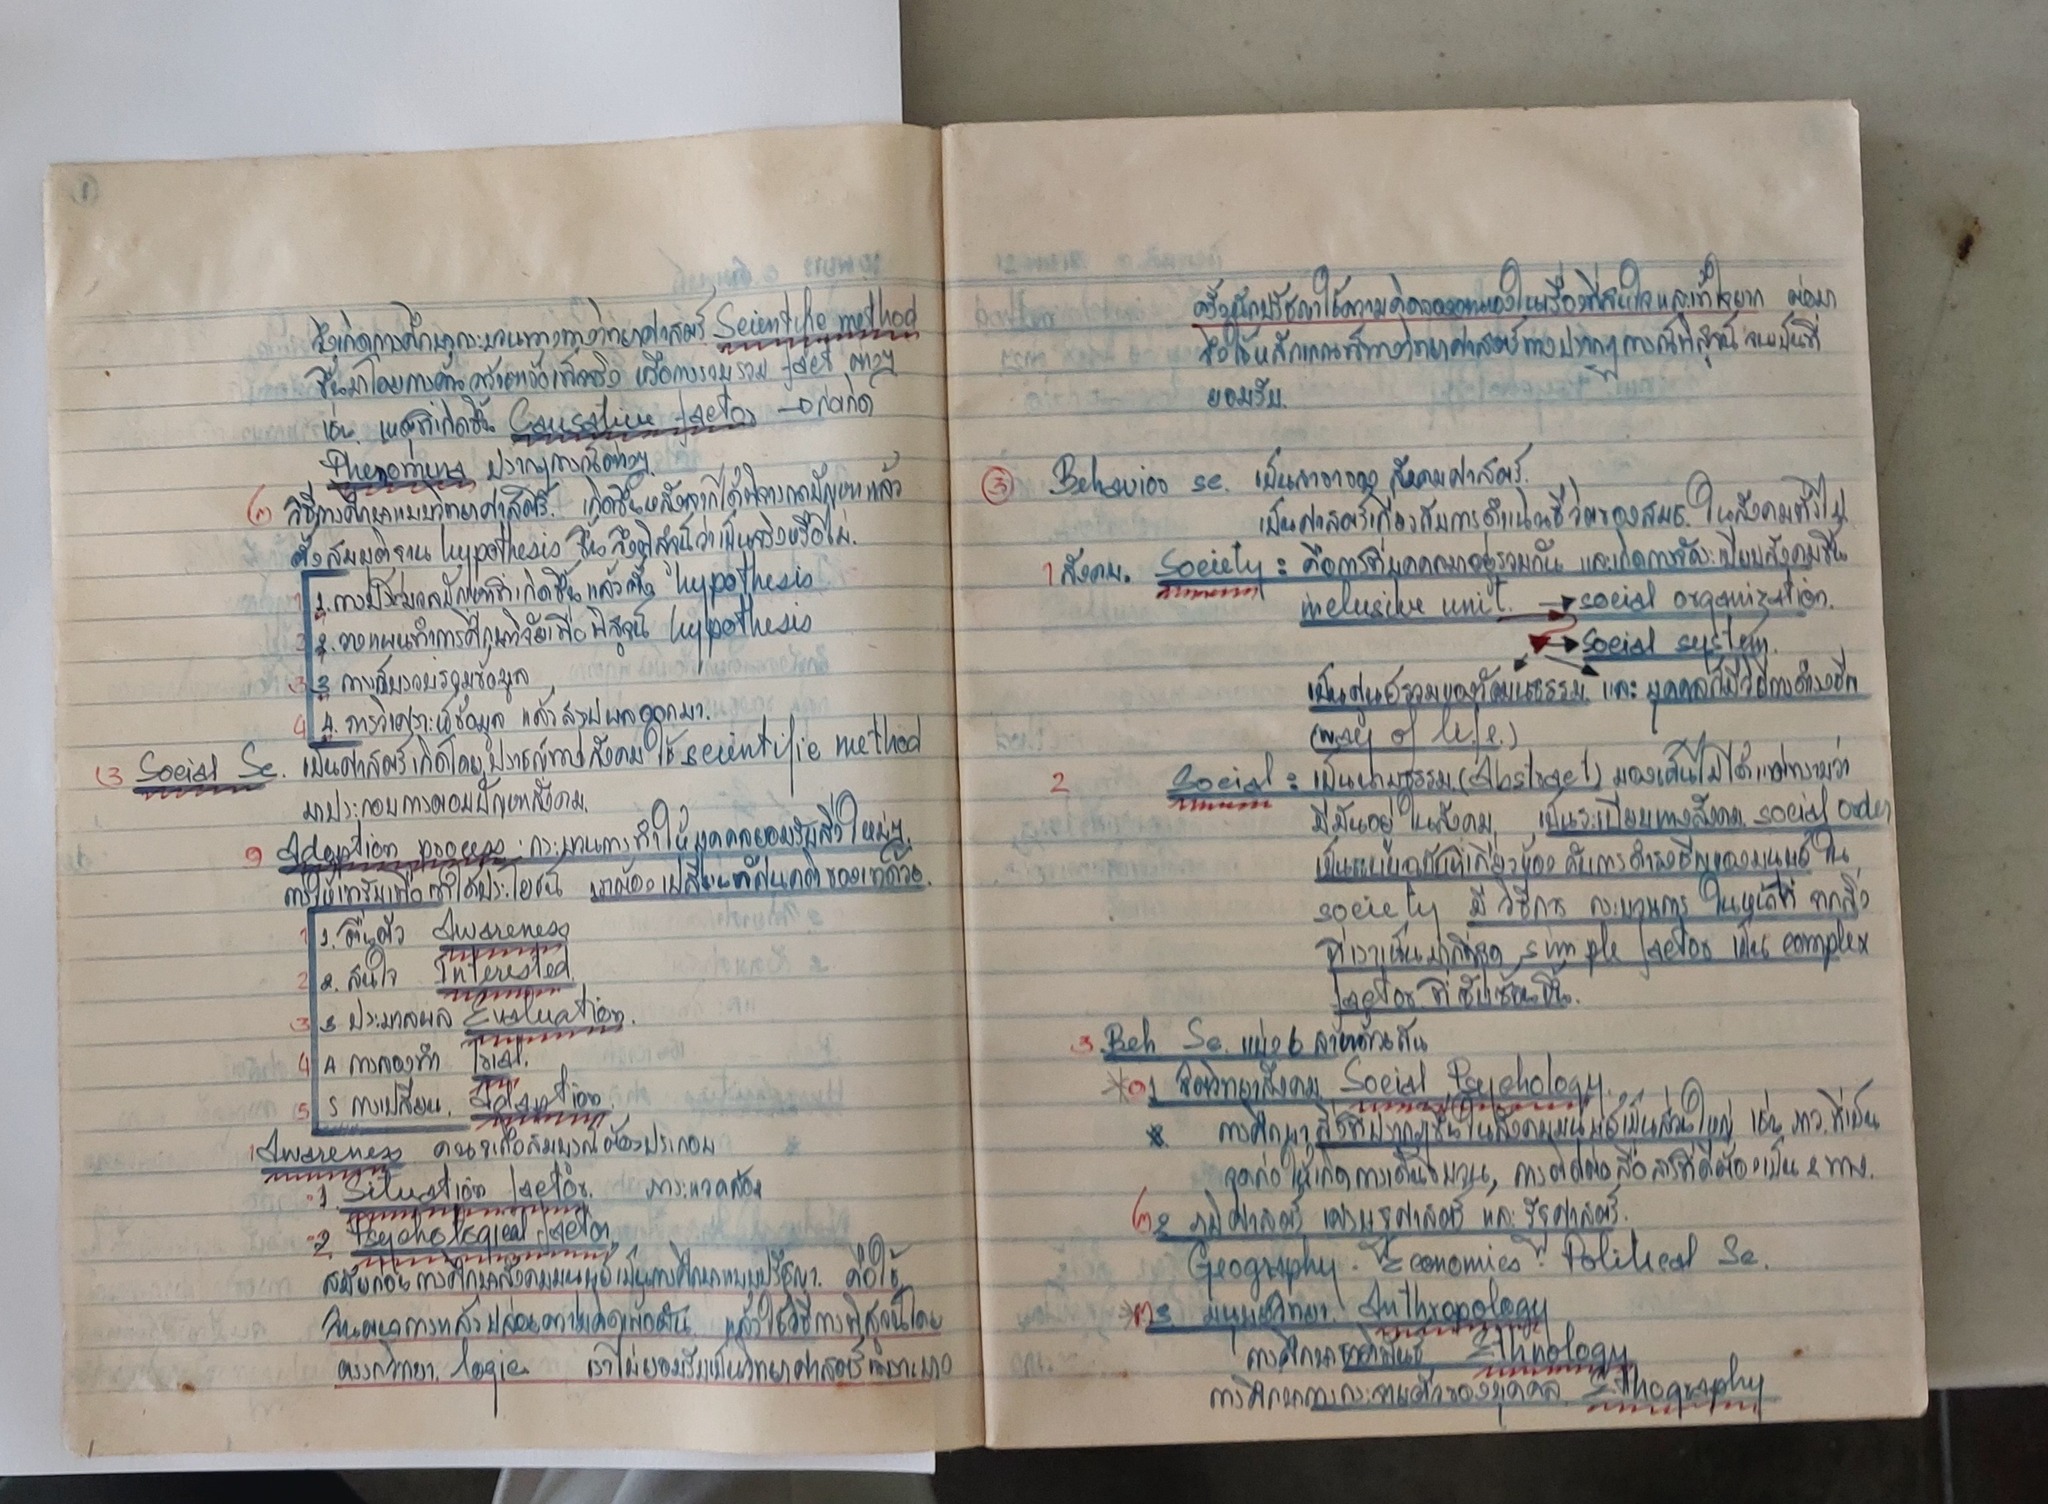 จึงเกิดการศึกษากระบวนทางทางวิทยาศาสตร์ Scientific method
ขึ้นมาโดยการค้นคว้าหาข้อเท็จจริง หรือการรวบรวม fact ต่างๆ
เช่น เหตุที่เกิดขึ้น Causative factor → ก่อเกิด
Phenomena ปรากฏการณ์ต่างๆ
วิธีการศึกษาแบบวิทยาศาสตร์. เกิดขึ้นหลังจากได้พิจารณาปัญหาแล้ว
ตั้งสมมุติฐาน hypothesis ขึ้น จึงพิสูจน์ว่าเป็นจริงหรือไม่.
1. การประมวลปัญหาที่เกิดขึ้น แล้วตั้ง hypothesis
2. วางแผนทำการศึกษาวิจัยเพื่อพิสูจน์ hypothesis
3. การเก็บรวบรวมข้อมูล
4. การวิเคราะห์ข้อมูล แล้วสรุปผลออกมา.
(3 Social Sc. เป็นศาสตร์เกิดโดยปราชญ์ทางสังคม ใช้ scientific method
มาประกอบการตอบปัญหาสังคม.
Adoption process : กระบวนการทำให้บุคคลยอมรับสิ่งใหม่ๆ
การให้เขารับเพื่อทำให้ประโยชน์ เราต้องเปลี่ยนทัศนคติของเขาด้วย.
1 1. ตื่นตัว Awareness
2 2. สนใจ Interested
3 3 ประมาลผล Evaluation.
4 4 การลองทำ Trial.
5 5 การเปลี่ยน. Adoption.
1 Awareness คนจะเกิดสมบูรณ์ต้องประกอบ
1. Situation factor. ภาวะแวดล้อม
2. Psychological factor
สมัยก่อนการศึกษาสังคมมนุษย์เป็นการศึกษาแบบปรัชญา. คือใช้
แล้วใช้วิธีการพิสูจน์โดย
ตรรกวิทยา logic เราไม่ยอมรับเป็นวิทยาศาสตร์
ครั้งนักปรัชญาใช้ความคิดของตนเองในเรื่องที่สนใจและเข้าใจยาก ต่อมา
จึงใช้หลักเกณฑ์ทางวิทยาศาสตร์ทางปรากฏการณ์พิสูจน์ จนเป็นที่
ยอมรับ.
(3) Behavior sc. เป็นสาขาของ สังคมศาสตร์.
เป็นศาสตร์เกี่ยวกับการดำเนินชีวิตของสมช. ในสังคมทั่วไป
1 สังคม. Society : คือการที่บุคคลมาอยู่รวมกัน และเกิดการจัดระเบียบสังคมขึ้น
inclusive unit. → social organization.
→ social system.
เป็นศูนย์รวมของวัฒนธรรม และ บุคคลก็มีวิถีการดำรงชีพ
(way of life.)
2 Social : เป็นนามธรรม (Abstract) มองเห็นไม่ได้ แต่ทราบว่า
มีมันอยู่ในสังคม เป็นระเบียบทางสังคม social order
เป็นระเบียบที่เกี่ยวข้องกับการดำรงชีพของมนุษย์ใน
society มีวิธีการ กระบวนการ ในหน้าที่ จากสิ่ง
ที่เราเห็นง่ายที่สุด simple factor เป็น complex
factor ที่ซับซ้อนขึ้น.
3. Beh Sc. แบ่ง 6 สาขาด้วยกัน
1 จิตวิทยาสังคม Social Psychology.
การศึกษาสิ่งที่ปรากฏขึ้นในสังคมมนุษย์เป็นส่วนใหญ่ เช่น ภาวะที่เป็น
จุดก่อให้เกิดการเดินขบวน, การติดต่อสื่อสารที่ดีต้องเป็น 2 ทาง.
2 ภูมิศาสตร์ เศรษฐศาสตร์ และ รัฐศาสตร์.
Geography. Economics. Political Sc.
3 มนุษยวิทยา. Anthropology
การศึกษาชาติพันธุ์ Ethnology
การศึกษาการกระจายตัวของบุคคล Ethography